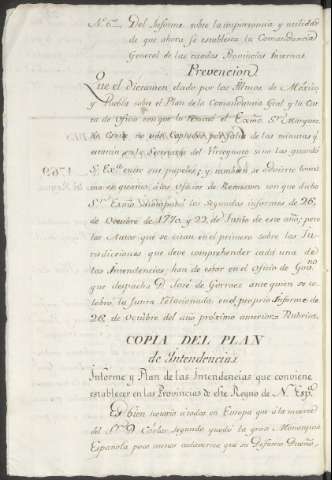 N. 6.º Del Informe sobre la importancia y utilidad
de que ahora se establesca la Comandancia
General de las citadas Provincias Internas.
Prevencion
Que el dictamen dado por los Illmos de Mexico,
y Puebla sobre el Plan de la Comandancia Gral y la Car
ta de Oficio con que la remitió el Exmo Sr Marques
de Croix no van Copiados por falta de las minutas q.e
estarán en la Secretaria del Virreynato si no las guardó
S. Ex.ª entre sus papeles; y tambien se advierte lo
mismo en quanto á los Oficios de Remision con que dicho
Sr Exmo acompañó los segundos informes de 26,
de Octubre de 1770, y 22, de Julio de este año; pero
los Autos que se citan en el primero sobre las Ju-
risdicciones que deve comprehender cada una de
las Intendencias, han de estar en el Oficio de Gov.no
que despacha D. José de Gorraez ante quien se ce
lebró la Junta relacionada en el propio Informe de
26, de Octubre del año próximo anterior = Rubrica.
COPIA DEL PLAN
de Intendencias.
Informe y Plan de las Intendencias que conviene
establecer en las Provincias de este Reyno de N. Esp.ª
Es bien notorio á todos en Europa que á la muerte
del Sr D. Carlos segundo quedó la gran Monarquia
Española poco menos cadaverica que su Difunto Dueño,